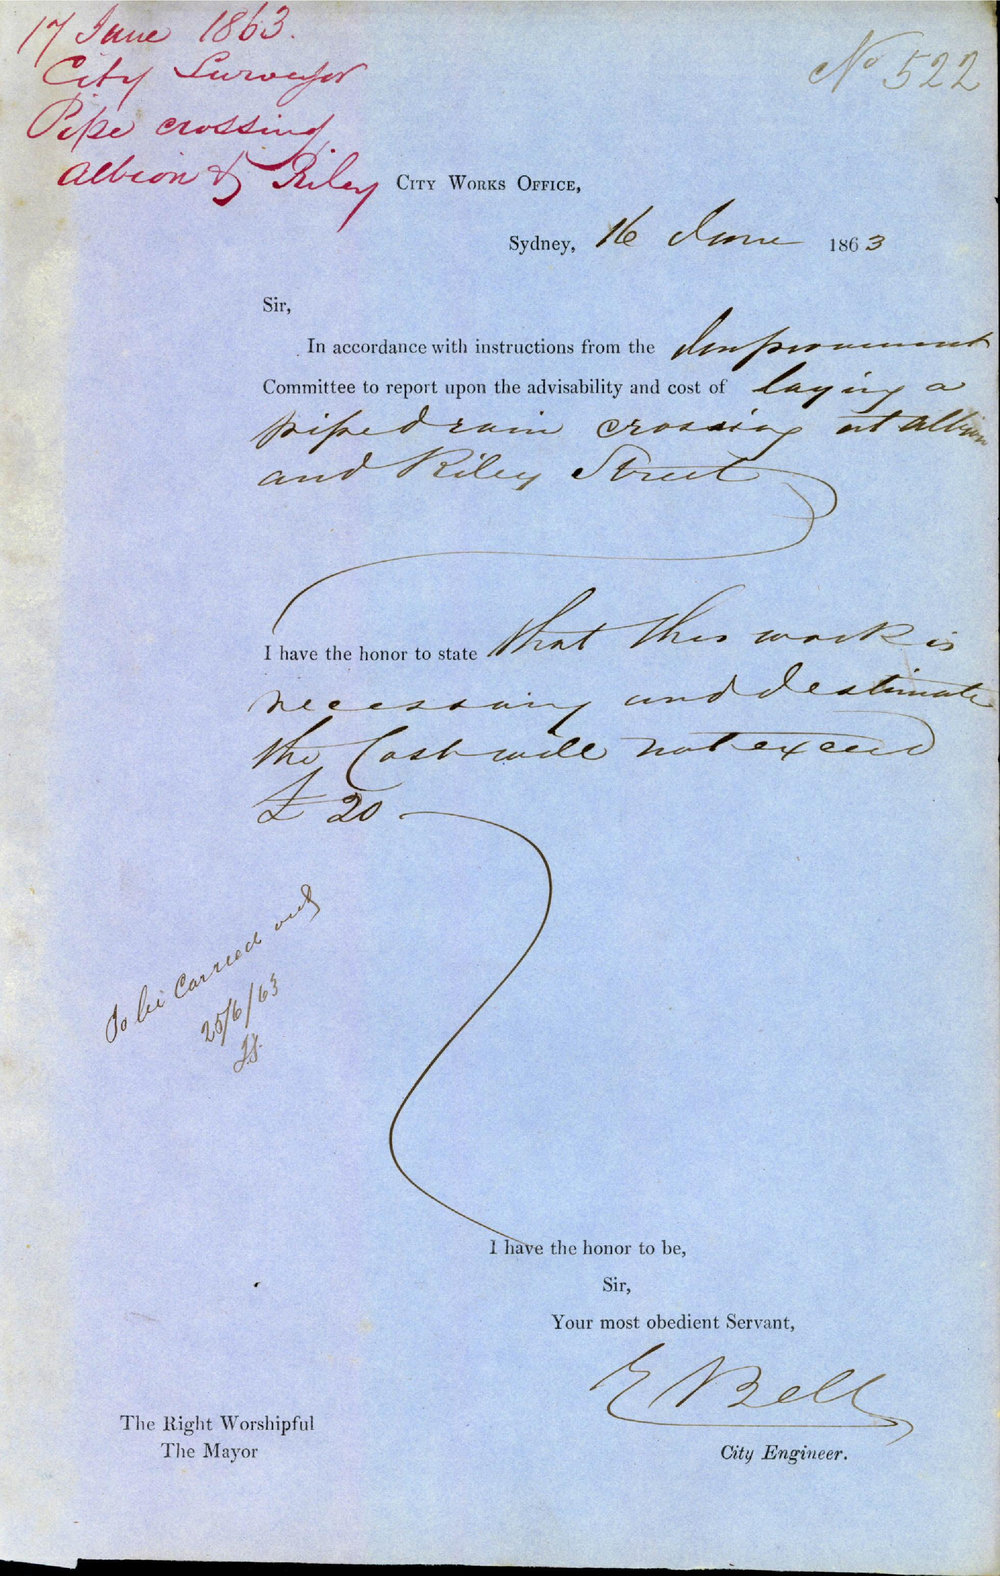 17 June 1863.
City Surveyor
Pipe crossing
Albion & Riley
No 522
City Works Office,
Sydney, 16 June 1863
Sir,
In accordance with instructions from the Improvement
Committee to report upon the advisability and cost of laying a
pipe drain crossing at Albion
and Riley Street
I have the honor to state that this work is
necessary and I estimate
the Cost will not exceed
£20
To be carried out
25/6/63
I have the honor to be,
Sir,
Your most obedient Servant,
E Bell
City Engineer.
The Right Worshipful
The Mayor